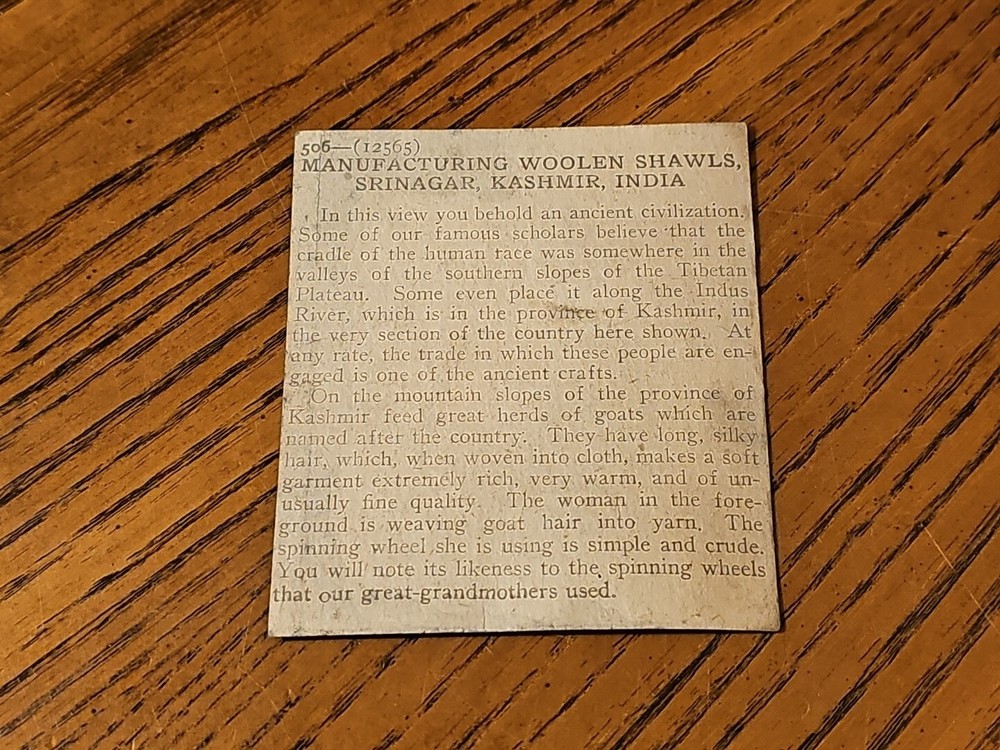 506—(12565)
MANUFACTURING WOOLEN SHAWLS,
SRINAGAR, KASHMIR, INDIA
In this view you behold an ancient civilization.
Some of our famous scholars believe that the
cradle of the human race was somewhere in the
valleys of the southern slopes of the Tibetan
Plateau. Some even place it along the Indus
River, which is in the province of Kashmir, in
the very section of the country here shown. At
any rate, the trade in which these people are en-
gaged is one of the ancient crafts.
On the mountain slopes of the province of
Kashmir feed great herds of goats which are
named after the country. They have long, silky
hair, which, when woven into cloth, makes a soft
garment extremely rich, very warm, and of un-
usually fine quality. The woman in the fore-
ground is weaving goat hair into yarn. The
spinning wheel she is using is simple and crude.
You will note its likeness to the spinning wheels
that our great-grandmothers used.